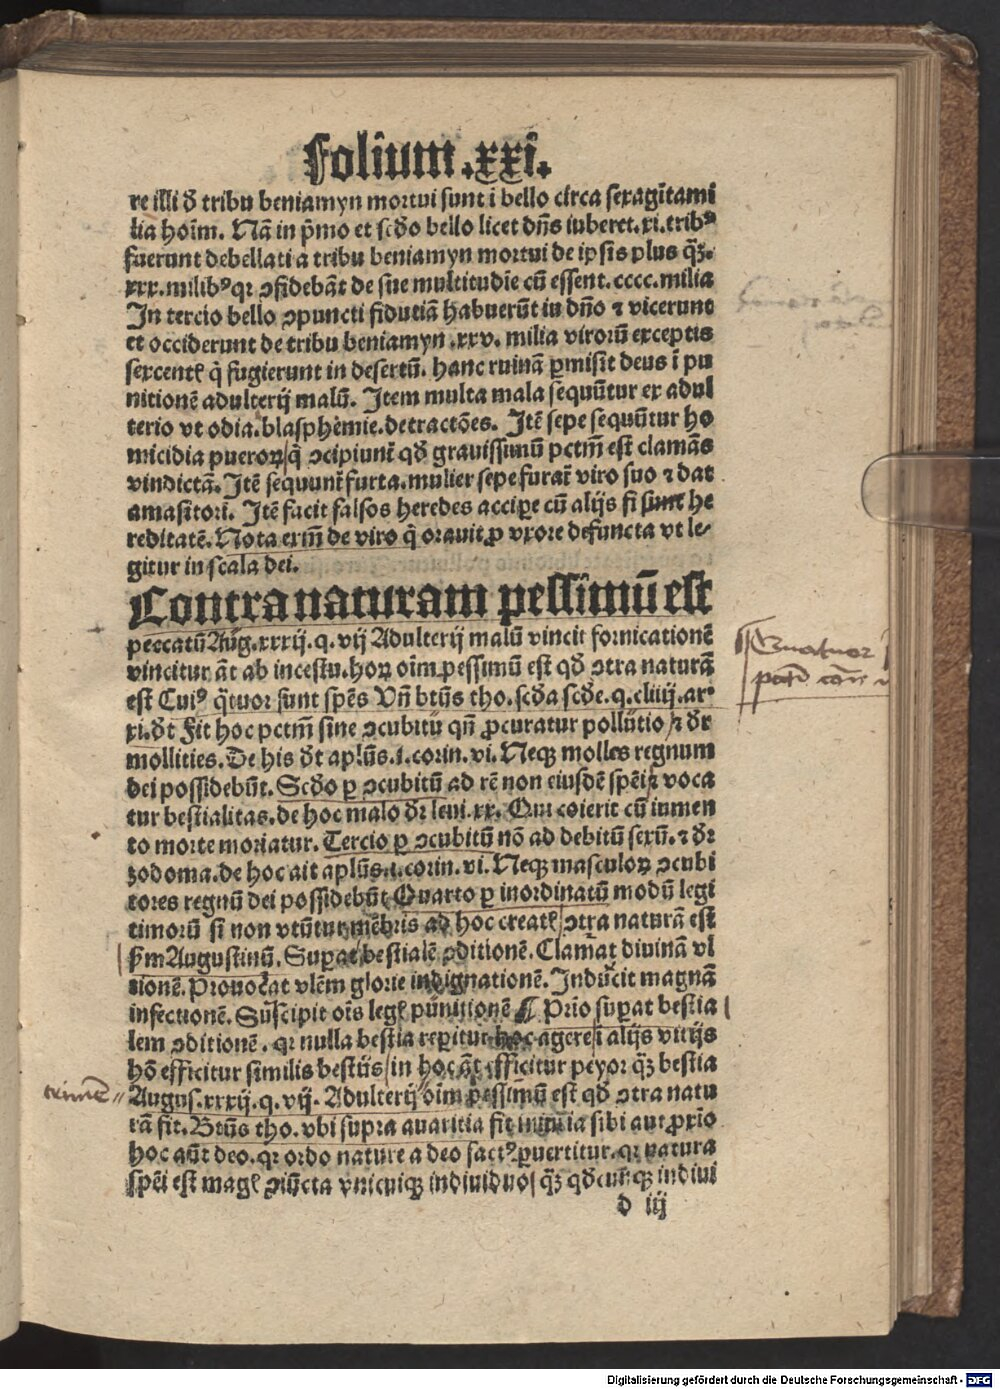 Folium .xxi.
re illi đ tribu beniamyn mortui sunt ī bello circa sexagītami
lia hoīm. Nā in p̄mo et scđo bello licet dn̄s iuberet .xi. tribꝰ
fuerunt debellati a tribu beniamyn mortui de ipsis plus qꝫ̄.
xxx. milibꝰ qꝛ ꝯfidebāt de sue multitudīe cū essent .cccc. milia
In tercio bello ꝯpuncti fidutiā habuerūt in dn̄o ⁊ vicerunt
et occiderunt de tribu beniamyn .xxv. milia virorū exceptis
sexcentꝭ q̇ fugierunt in desertū. hanc ruinā ꝑmisit deus ī pu
nitionē adulterij malū. Item multa mala sequūtur ex adul
terio vt odia. blasphēmie. detractōes. Itē sepe sequūtur ho
micidia pueroꝝ q̇ ꝯcipiunt̄ qđ grauissimū pctm̄ est clamās
vindictā. Itē sequunt̄ furta. mulier sepe furat̄ viro suo ⁊ dat
amasitori. Itē facit falsos heredes accipe cū alijs fi sunt he
reditatē. Nota exm̄ de viro q̇ orauit ꝓ vxore defuncta vt le-
gitur in scala dei.
Contra naturam pessimū est
peccatū Aug. xxxij. q. vij Adulterij malū vincit fornicationē
vincitur āt ab incestu. hoꝝ oīm pessimū est qđ ꝯtra naturā
est Cuiꝰ q̇tuor sunt spēs Vn̄ btūs tho. scđa scđe. q. cliiij. ar-
xi. đt Fit hoc pctm̄ sine ꝯcubitu qn̄ ꝓcuratur pollutio ⁊ đr
mollities. De his đt aplūs .i. corin. vi. Neqꝫ molles regnum
dei possidebūt. Scđo ꝑ ꝯcubitū ad rē non eiusdē spēi ⁊ voca
tur bestialitas. de hoc malo đr leui. xx. Qui coierit cū iumen
to morte moriatur. Tercio ꝑ ꝯcubitū nō ad debitū sexū. ⁊ đr
zodoma. de hoc ait aplūs .i. corin. vi. Neqꝫ masculoꝝ ꝯcubi
tores regnū dei possidebūt Quarto ꝑ inordinatū modū legi
timorū si non vtūtur mēbris ad hoc creatꝭ ꝯtra naturā est
fm̄ Augustinū. Supat bestialē ꝯditionē. Clamat diuinā vl
tionē. Prouocat vlēm glorie indignationē. Inducit magnā
infectionē. Suscipit oīs legꝭ punitionē ¶ Prīo supat bestia
lem ꝯditionē. qꝛ nulla bestia repitur hoc agere ⁊ alijs vitijs
hō efficitur similis bestijs in hoc āt efficitur peyor qꝫ̄ bestia
Augus. xxxij. q. vij. Adulterij oīm pessimū est qđ ꝯtra natu
rā fit. Btūs tho. vbi supra auaritia fit iniuria sibi aut ꝓxīo
hoc aūt deo. qꝛ ordo nature a deo factꝰ puertitur. qꝛ natura
spēi est magꝭ ꝯiūcta vnicuiqꝫ indiuiduo qꝫ̄ qđcūqꝫ indiui
d iij
Quatuor
Digitalisierung gefördert durch die Deutsche Forschungsgemeinschaft - DFG